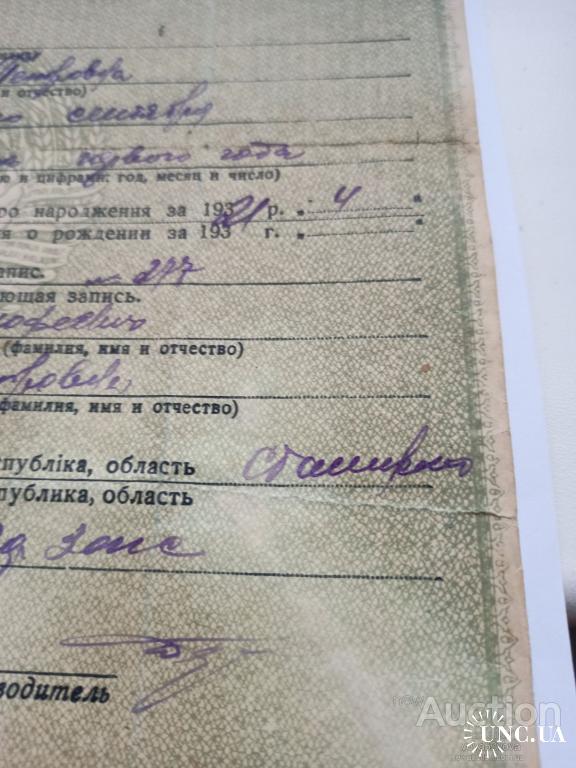 Петровна
и отчество)
сентября
первого года
ю и цифрами: год, месяц и число)
ро народження за 193 р. " 4 "
я о рождении за 193 г. " "
апис. № 277
ующая запись.
(фамилия, имя и отчество)
фамилия, имя и отчество)
спубліка, область Сталинская
спублика, область
Загс
водитель
Auction
UNC.UA